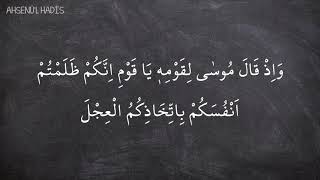 AHSENÜ'L HADİS
وَاِذْ قَالَ مُوسٰى لِقَوْمِه۪ يَا قَوْمِ اِنَّكُمْ ظَلَمْتُمْ
اَنْفُسَكُمْ بِاتِّخَاذِكُمُ الْعِجْلَ